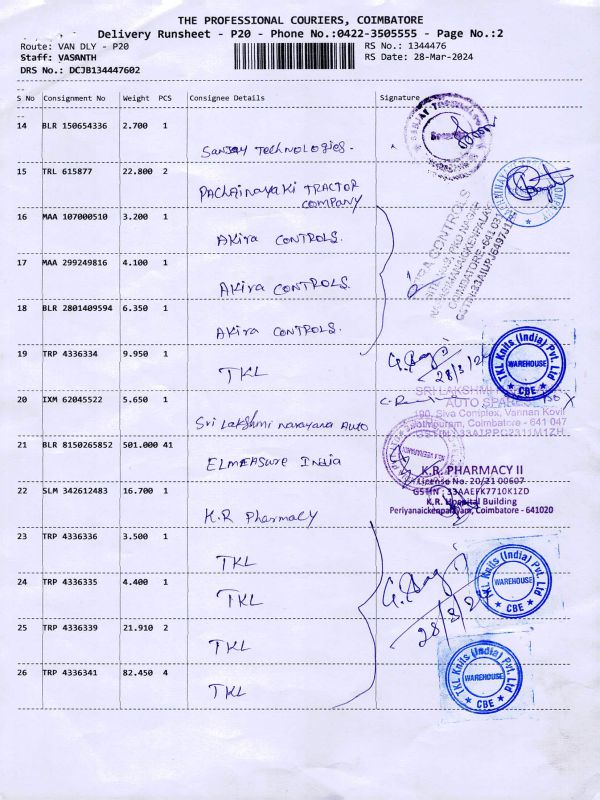 THE PROFESSIONAL COURIERS, COIMBATORE
Delivery Runsheet - P20 - Phone No.:0422-3505555 - Page No.:2
Route: VAN DLY - P20 RS No.: 1344476
Staff: VASANTH RS Date: 28-Mar-2024
DRS No.: DCJB134447602
S No Consignment No Weight PCS Consignee Details Signature
14 BLR 150654336 2.700 1
Sanjay Technologies.
15 TRL 615877 22.800 2
Pachainayaki TRACTOR
COMPANY
16 MAA 107000510 3.200 1
AKira CONTROLS.
17 MAA 299249816 4.100 1
AKira CONTROLS.
18 BLR 2801409594 6.350 1
AKira CONTROLS.
19 TRP 4336334 9.950 1
TKL
28/3/24
TKL Knits (India) Pvt. Ltd
WAREHOUSE
CBE
20 IXM 62045522 5.650 1
Sri Lakshmi narayana Auto
SRI LAKSHMI
AUTO SPARES
190, Siva Complex, Vannan Kovil
Jothipuram, Coimbatore - 641 047
21 BLR 8150265852 501.000 41
ELMEASURE India
K.R. PHARMACY II
License No. 20/21 00607
GSTIN : 33AAEFK7710K1ZD
K.R. Hospital Building
Periyanaickenpalayam, Coimbatore - 641020
22 SLM 342612483 16.700 1
K.R Pharmacy
23 TRP 4336336 3.500 1
TKL
24 TRP 4336335 4.400 1
TKL
28/3/24
TKL Knits (India) Pvt. Ltd
WAREHOUSE
CBE
25 TRP 4336339 21.910 2
TKL
26 TRP 4336341 82.450 4
TKL
TKL Knits (India) Pvt. Ltd
WAREHOUSE
CBE